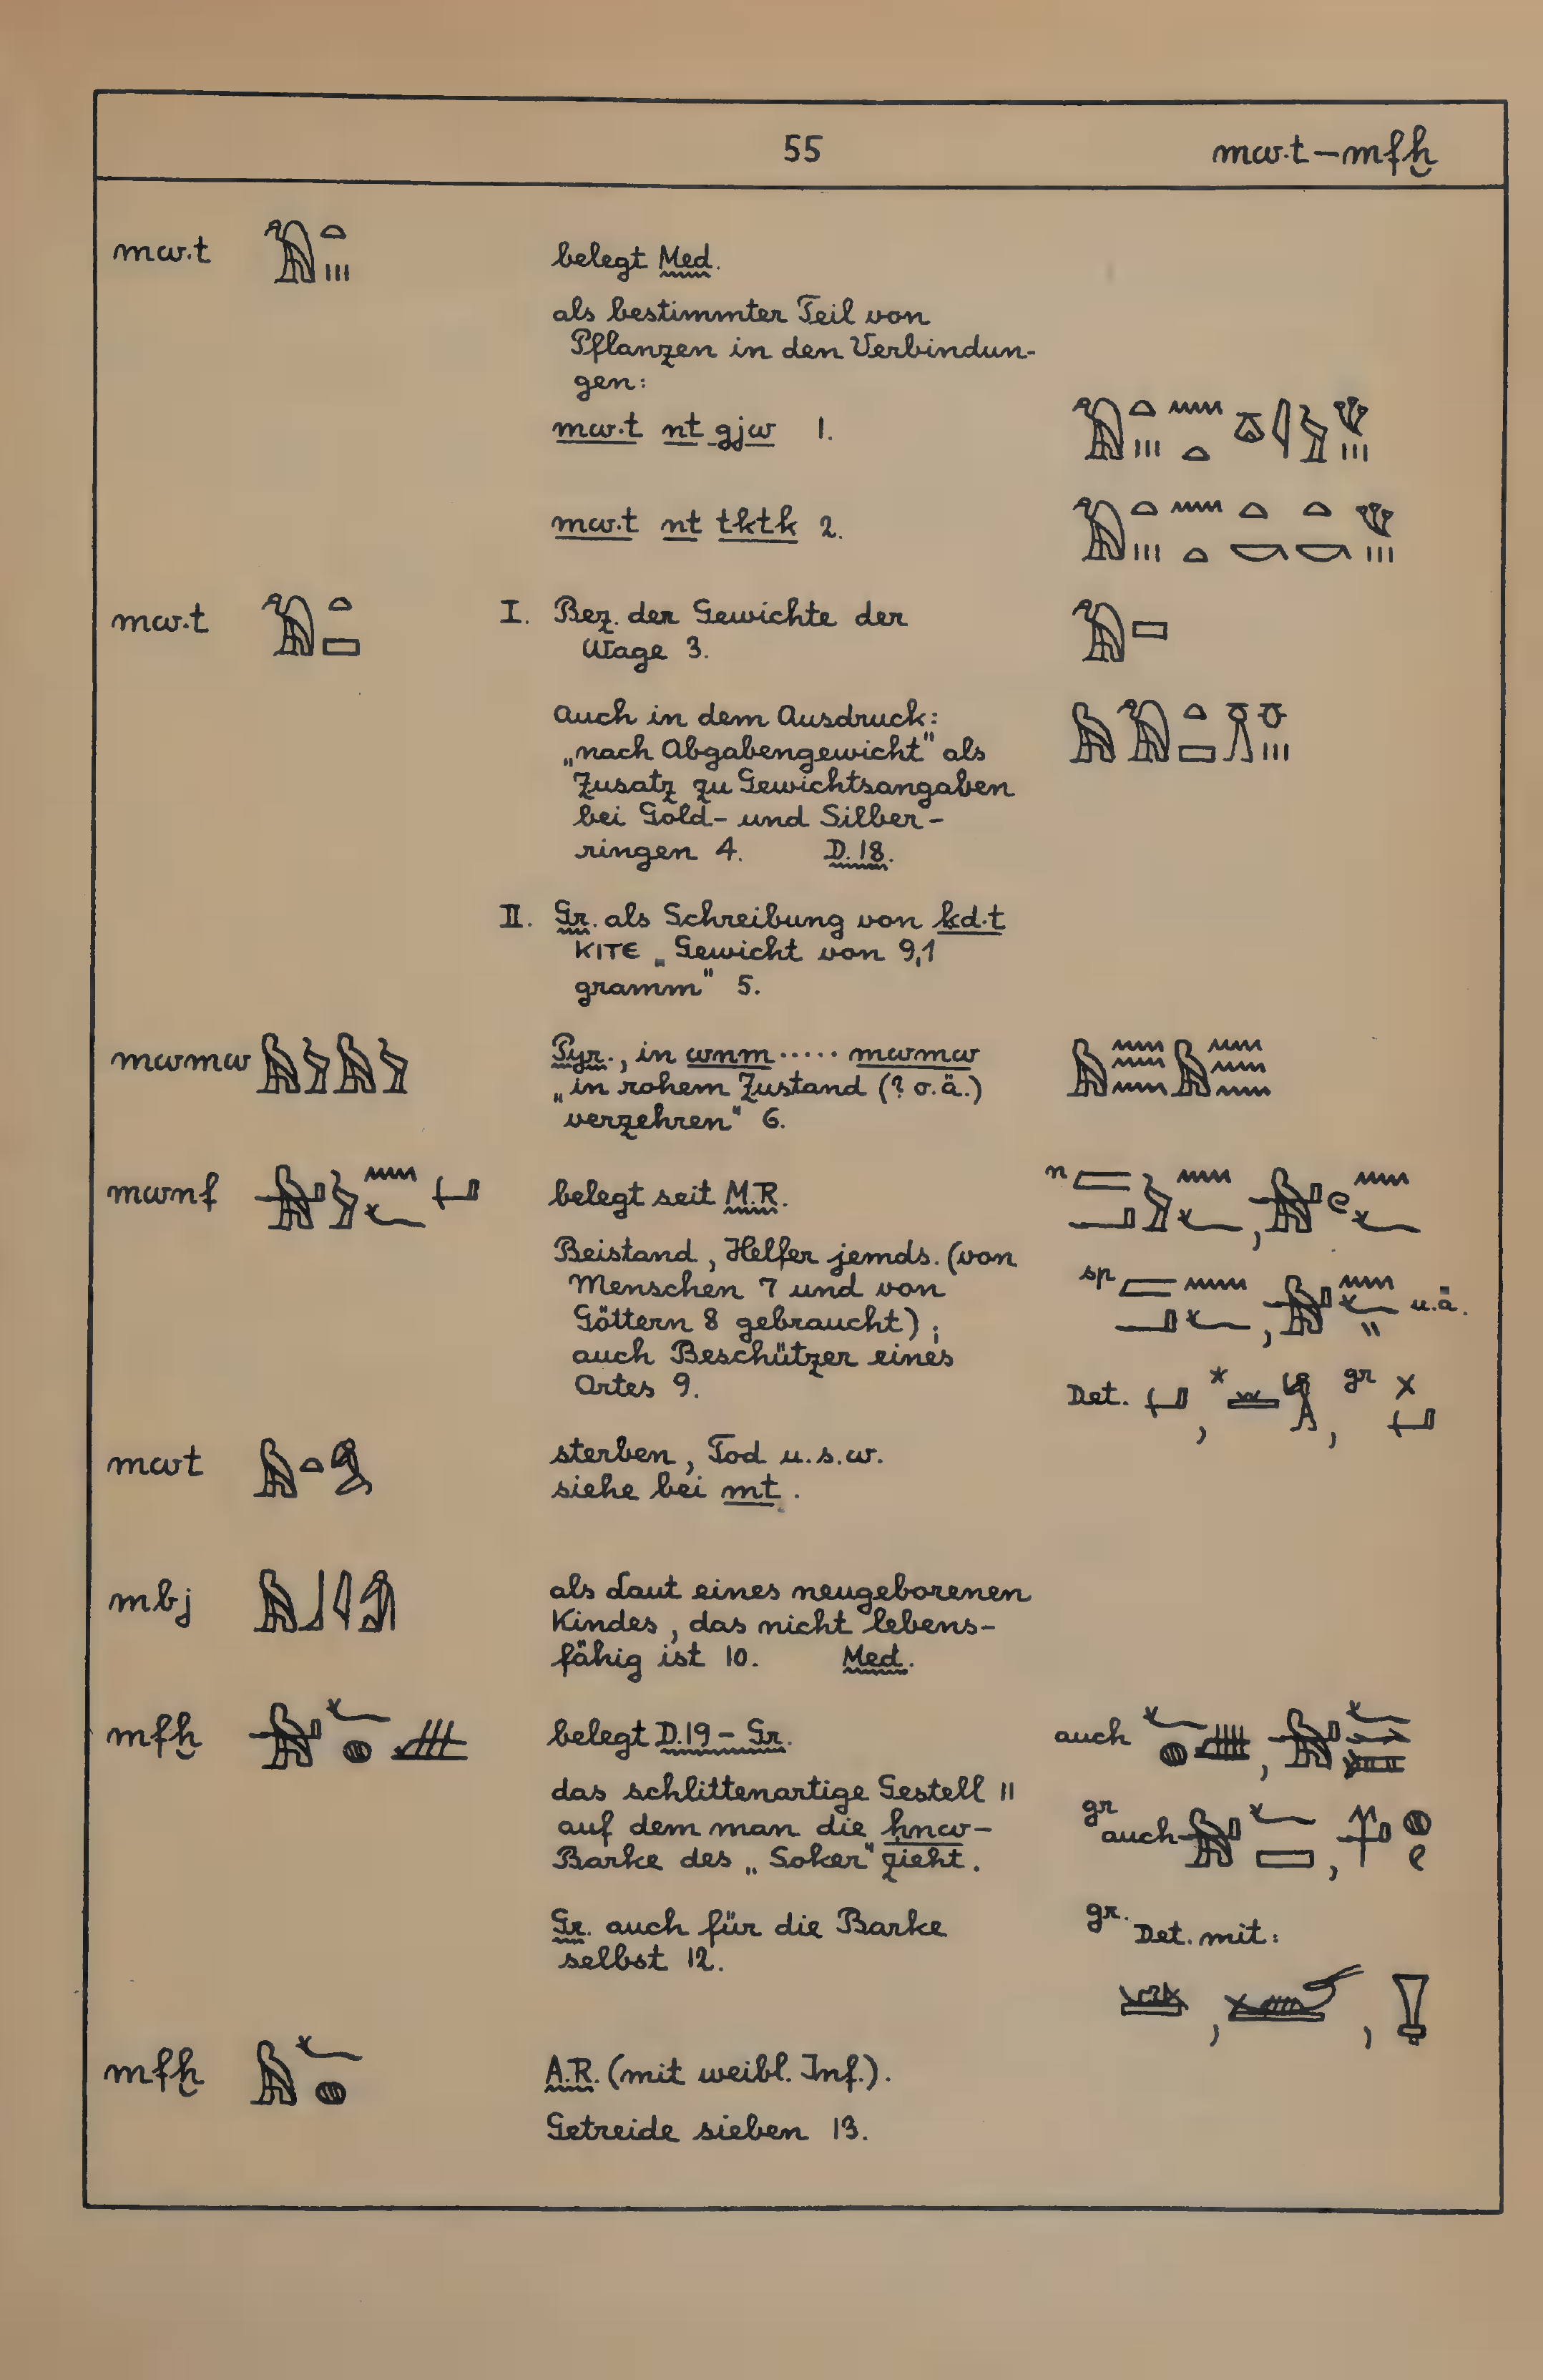 55
mw.t – mfḫ
mw.t 𓅐𓏏𓏥 belegt Med.
als bestimmter Teil von
Pflanzen in den Verbindun-
gen:
mw.t nt gjw 1. 𓅐𓏏𓏥𓈖𓏏𓎼𓇋𓅱𓆰𓏥
mw.t nt tktk 2. 𓅐𓏏𓏥𓈖𓏏𓏏𓎡𓏏𓎡𓆰𓏥
mw.t 𓅐𓏏𓈙 I. Bez. der Gewichte der 𓅐𓈙
Wage 3.
Auch in dem Ausdruck: 𓅓𓅐𓏏𓈙
„nach Abgabengewicht" als
Zusatz zu Gewichtsangaben
bei Gold- und Silber-
ringen 4. D. 18.
II. Gr. als Schreibung von ḳd.t
KITE „Gewicht von 9,1
gramm" 5.
mwmw 𓅓𓅱𓅓𓅱 Pyr., in wnm ..... mwmw 𓅓𓈗𓅓𓈗
„in rohem Zustand (? o.ä.)
verzehren" 6.
mwnf 𓅓𓅱𓈖𓆑𓂡 belegt seit M.R. n
Beistand, Helfer jemds. (von
Menschen 7 und von sp u.ä.
Göttern 8 gebraucht);
auch Beschützer eines
Ortes 9. Det. gr
mwt 𓅓𓏏𓀐 sterben, Tod u.s.w.
siehe bei mt.
mbj 𓅓𓃀𓇋𓀁 als Laut eines neugeborenen
Kindes, das nicht lebens-
fähig ist 10. Med.
mfḫ 𓅓𓆑𓐍 belegt D. 19 – Gr. auch
das schlittenartige Gestell 11 gr
auf dem man die ḥnw- auch
Barke des „Soker" zieht.
Gr. auch für die Barke gr. Det. mit:
selbst 12.
mfḫ 𓅓𓆑𓐍 A.R. (mit weibl. Inf.).
Getreide sieben 13.